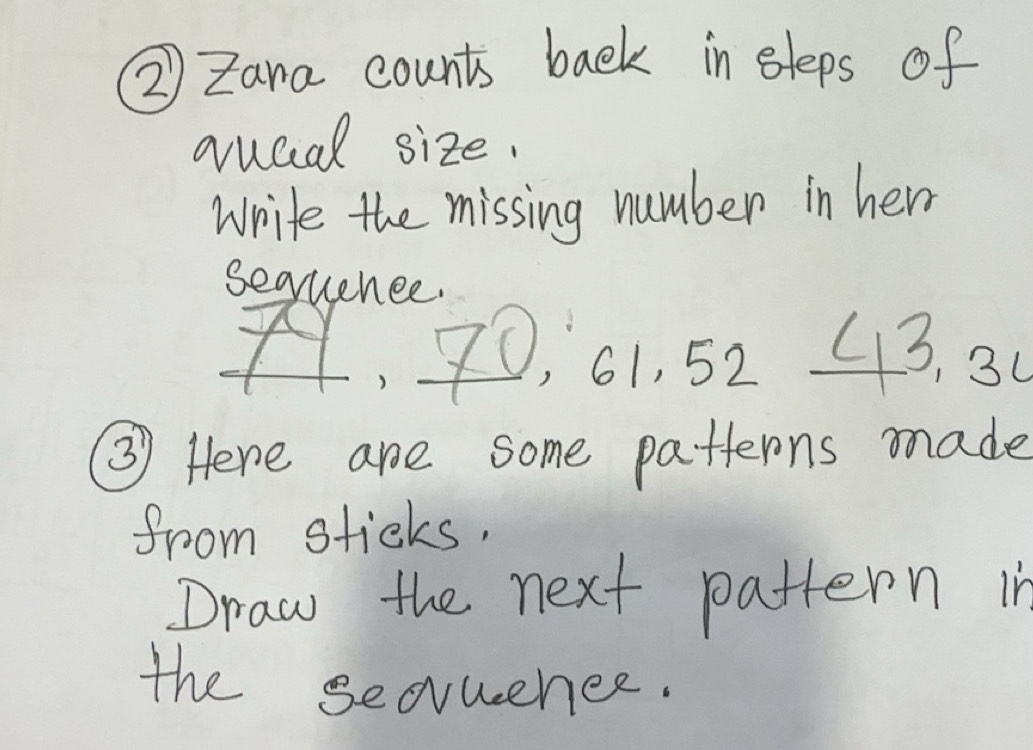 ② Zara counts back in steps of
qucial size.
Write the missing number in her
sequence.
79, 70, 61, 52 43, 34
③ Here are some patterns made
from sticks.
Draw the next pattern in
the sequence.